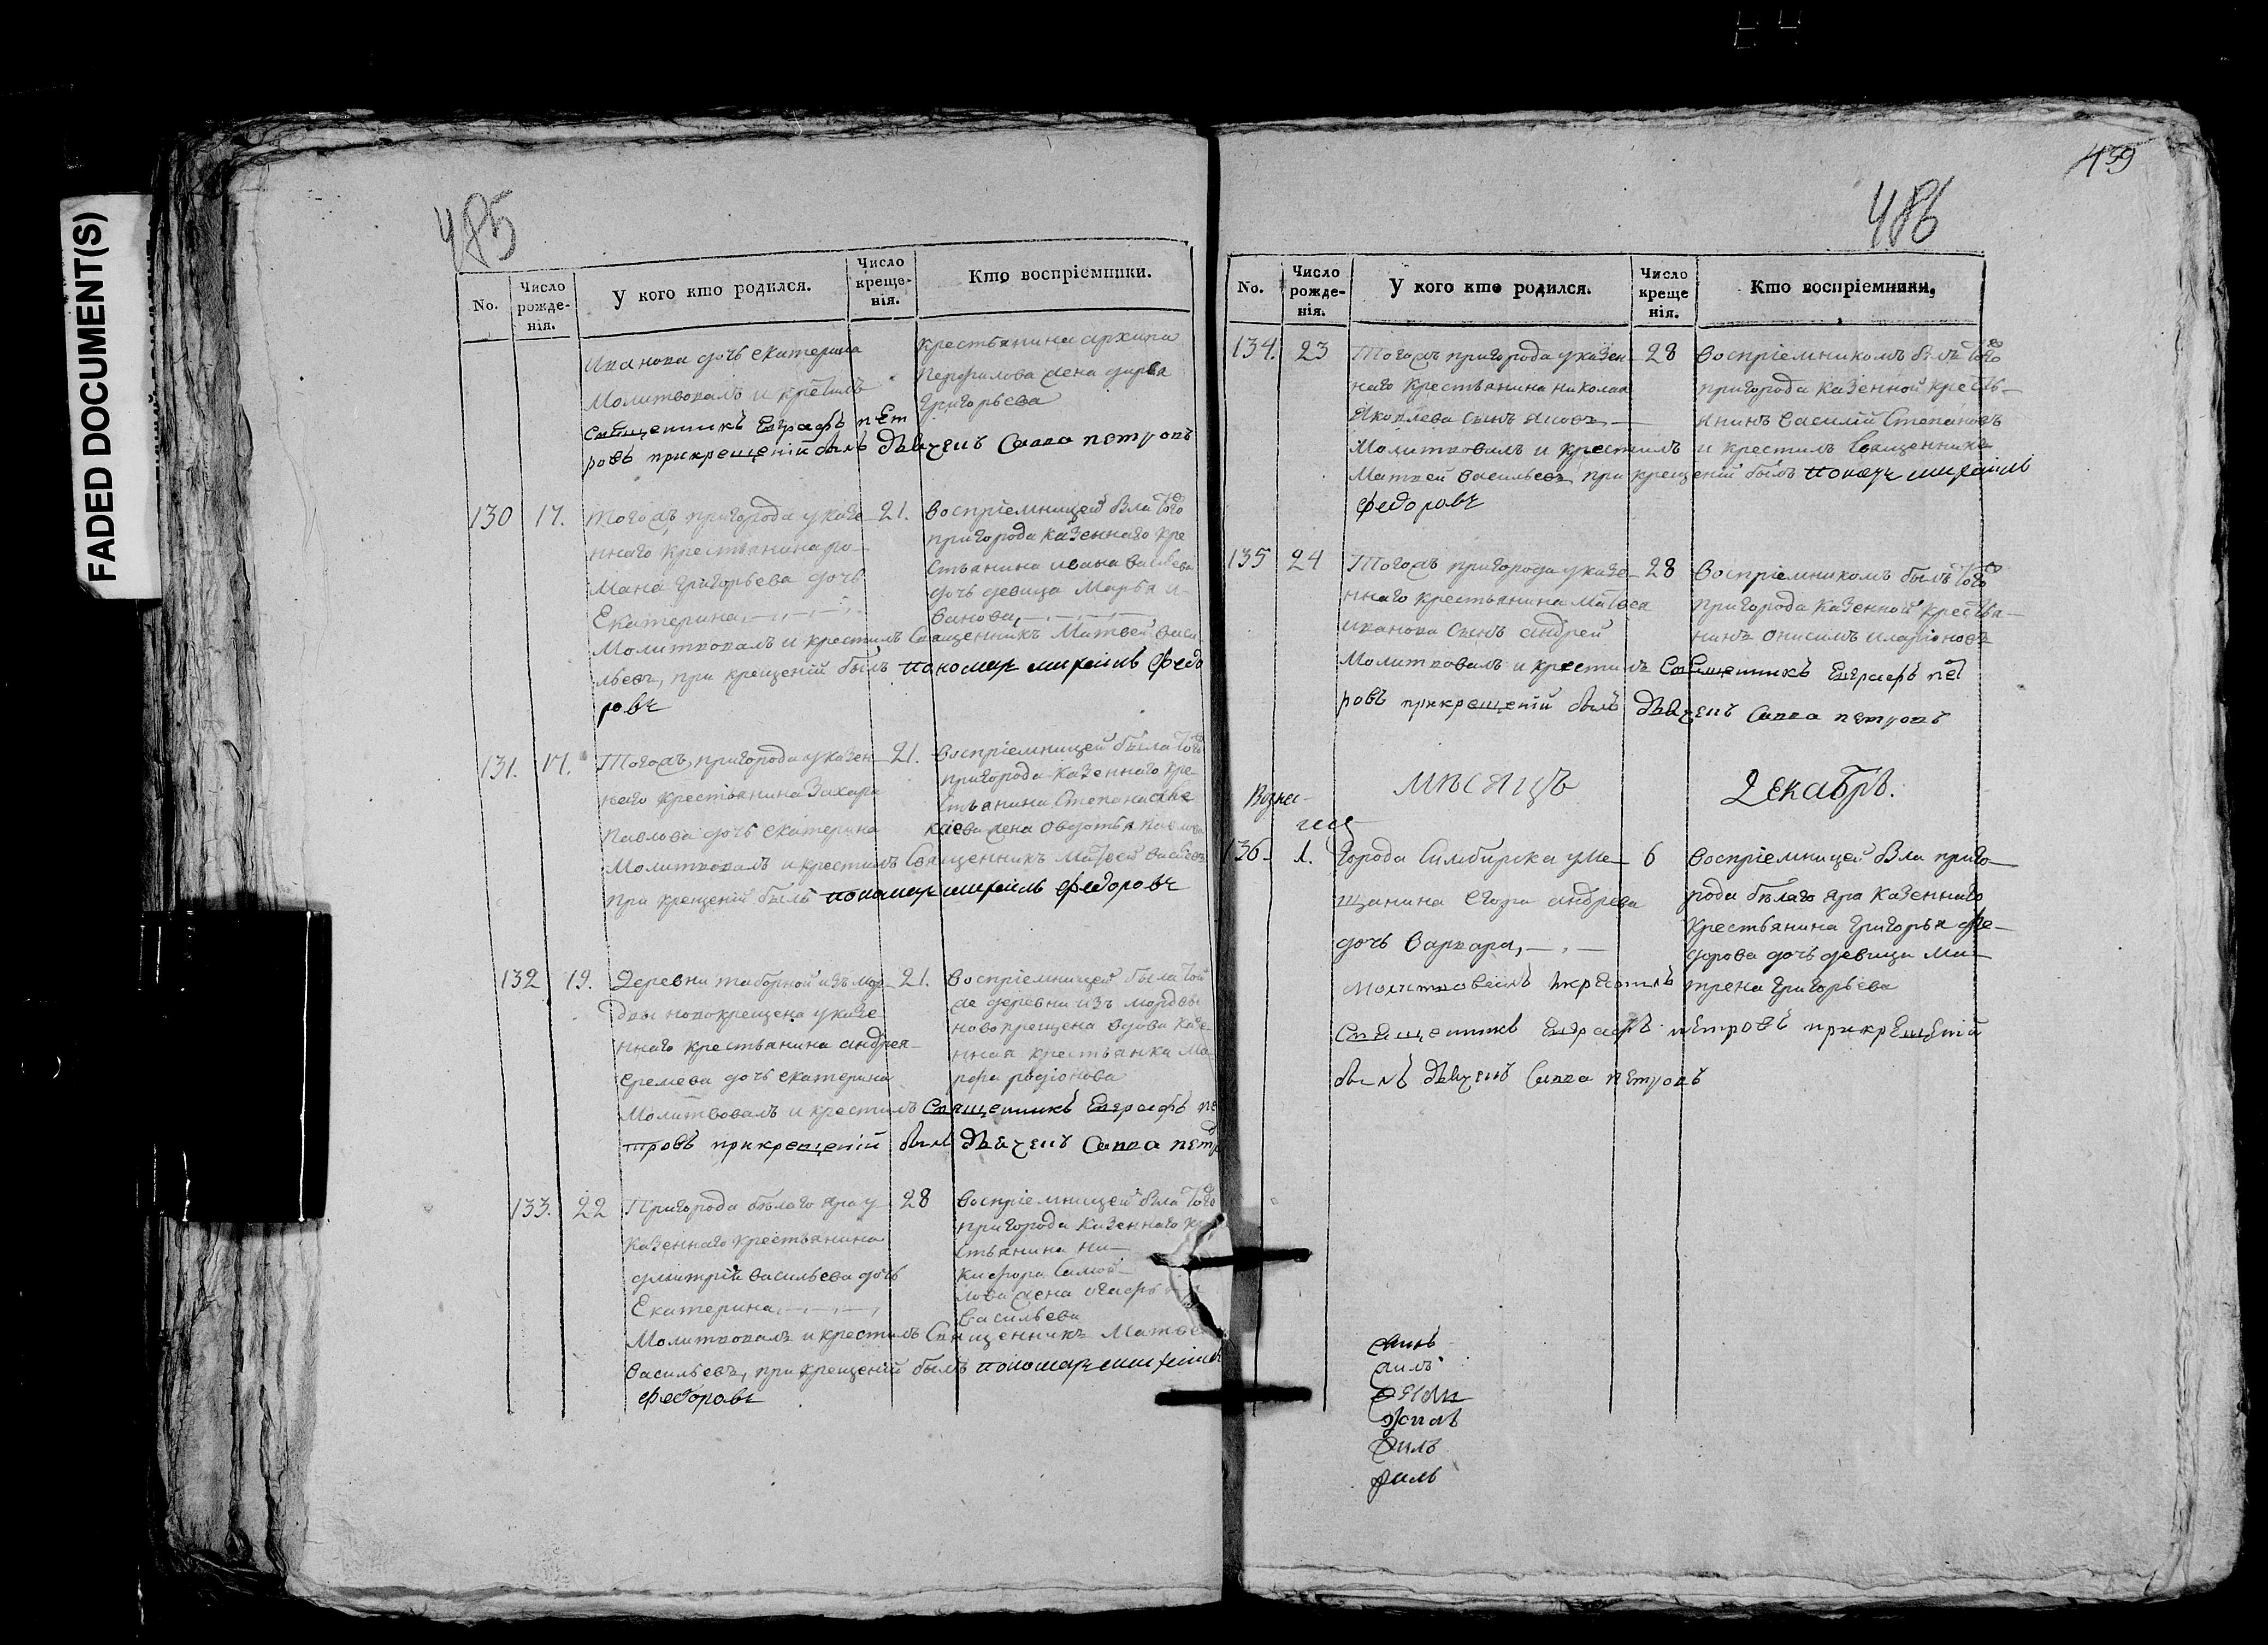 FADED DOCUMENT(S)
485
No.
Число рожде-нія.
У кого кто родился.
Число креще-нія.
Кто воспріемники.
Иванова дочь екатерина
Молитвовалъ и крестилъ
Священникъ Евграфъ пет
ровъ прикрещеніи былъ дьячекъ Савва петровъ
крестьянина архипа
Перфилова жена дарья
Григорьева
130
17.
Тогожъ пригорода у казе
ннаго крестьянина ро-
мана григорьева дочь
Екатерина
Молитвовалъ и крестилъ Священникъ Матвей Васи
льевъ, при крещеніи былъ пономарь михаилъ Федо
ровъ
21.
Воспріемницей была того
пригорода казеннаго кре
стьянина ивана васильева
дочь девица Марья и-
ванова
131.
17.
Тогожъ пригорода у казен
наго крестьянина Захара
Павлова дочь екатерина
Молитвовалъ и крестилъ Священникъ Матвей васильевъ
при крещеніи былъ пономарь михаилъ Федоровъ
21.
Воспріемницей была того
пригорода казеннаго кре-
стьянина Степана
жена Овдотья
132
19.
Деревни таборной изъ мор-
двы новокрещена у казе
ннаго крестьянина андрея
еремева дочь екатерина
Молитвовалъ и крестилъ Священникъ Евграфъ пе
тровъ прикрещеніи былъ дьячекъ Савва петр
21.
Воспріемницей была той
же деревни изъ мордвы
новокрещена вдова казе
нная крестьянка Ма
рфа родіонова
133.
22
Пригорода белаго яра у
казеннаго крестьянина
дмитрія васильева дочь
Екатерина
Молитвовалъ и крестилъ Священникъ Матвей
Васильевъ, при крещеніи былъ пономарь михаилъ
Федоровъ
28
Воспріемницей была того
пригорода казеннаго кре
стьянина ни-
кифора Самой-
лова жена агафь
васильева
439
486
No.
Число рожде-нія.
У кого кто родился.
Число креще нія.
Кто воспріемники.
134.
23
Тогожъ пригорода у казен-
наго крестьянина николая
Яковлева сынъ
Молитвовалъ и крестилъ и крестилъ Священникъ
Матвей Васильевъ, при крещеніи былъ пономарь михаилъ
Федоровъ
28
Воспріемникомъ былъ того
пригорода казенной кресть-
янинъ василій Степановъ
135
24
Тогожъ пригорода у казе-
ннаго крестьянина Матвея
иванова сынъ андрей
Молитвовалъ и крестилъ Священникъ Евграфъ пет
ровъ прикрещеніи былъ дьячекъ Савва петровъ
28
Воспріемникомъ былъ того
пригорода казенной крестья-
нинъ онисимъ иларіоновъ
мѣсяцъ Декабрь.
136.
1.
Города Симбирска у ме-
щанина егора андреева
дочь варвара,
Молитвовалъ икрестилъ
Священникъ Евграфъ петровъ прикрещеніи
былъ дьячекъ Савва петровъ
6
Воспріемницей была приго-
рода белаго яра казеннаго
крестьянина григорья фе-
дорова дочь девица ма-
трена григорьева